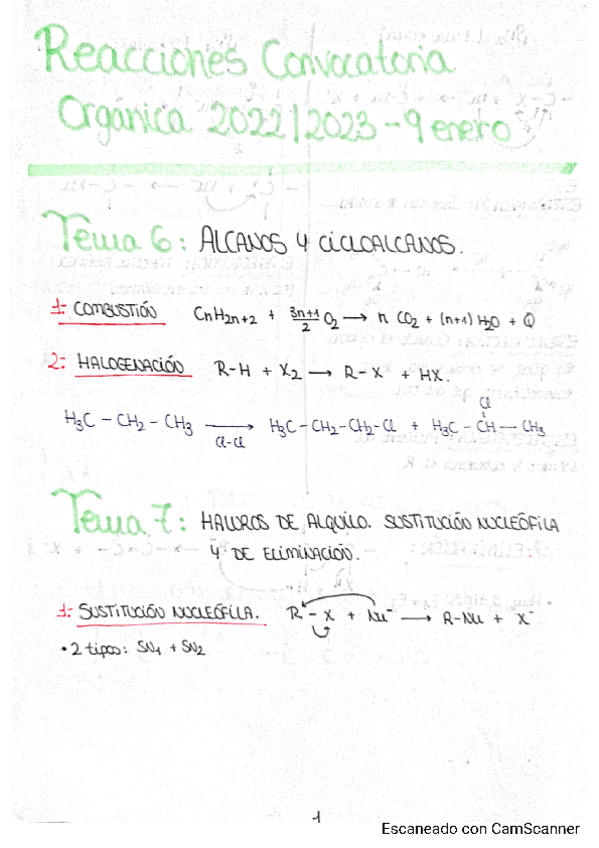 Reacciones Convocatoria
Orgánica 2022/2023 - 9 enero
Tema 6: ALCANOS Y CICLOALCANOS.
1: COMBUSTIÓN CnH2n+2 + 3n+1/2 O2 → n CO2 + (n+1) H2O + Q
2: HALOGENACIÓN R-H + X2 → R-X + HX.
Cl
H3C - CH2 - CH3 → H3C - CH2 - CH2 - Cl + H3C - CH - CH3
Cl-Cl
Tema 7: HALUROS DE ALQUILO. SUSTITUCIÓN NUCLEÓFILA
Y DE ELIMINACIÓN.
1: SUSTITUCIÓN NUCLEÓFILA. R - X + Nu⁻ → R-Nu + X⁻
• 2 tipos: SN1 + SN2
1
Escaneado con CamScanner